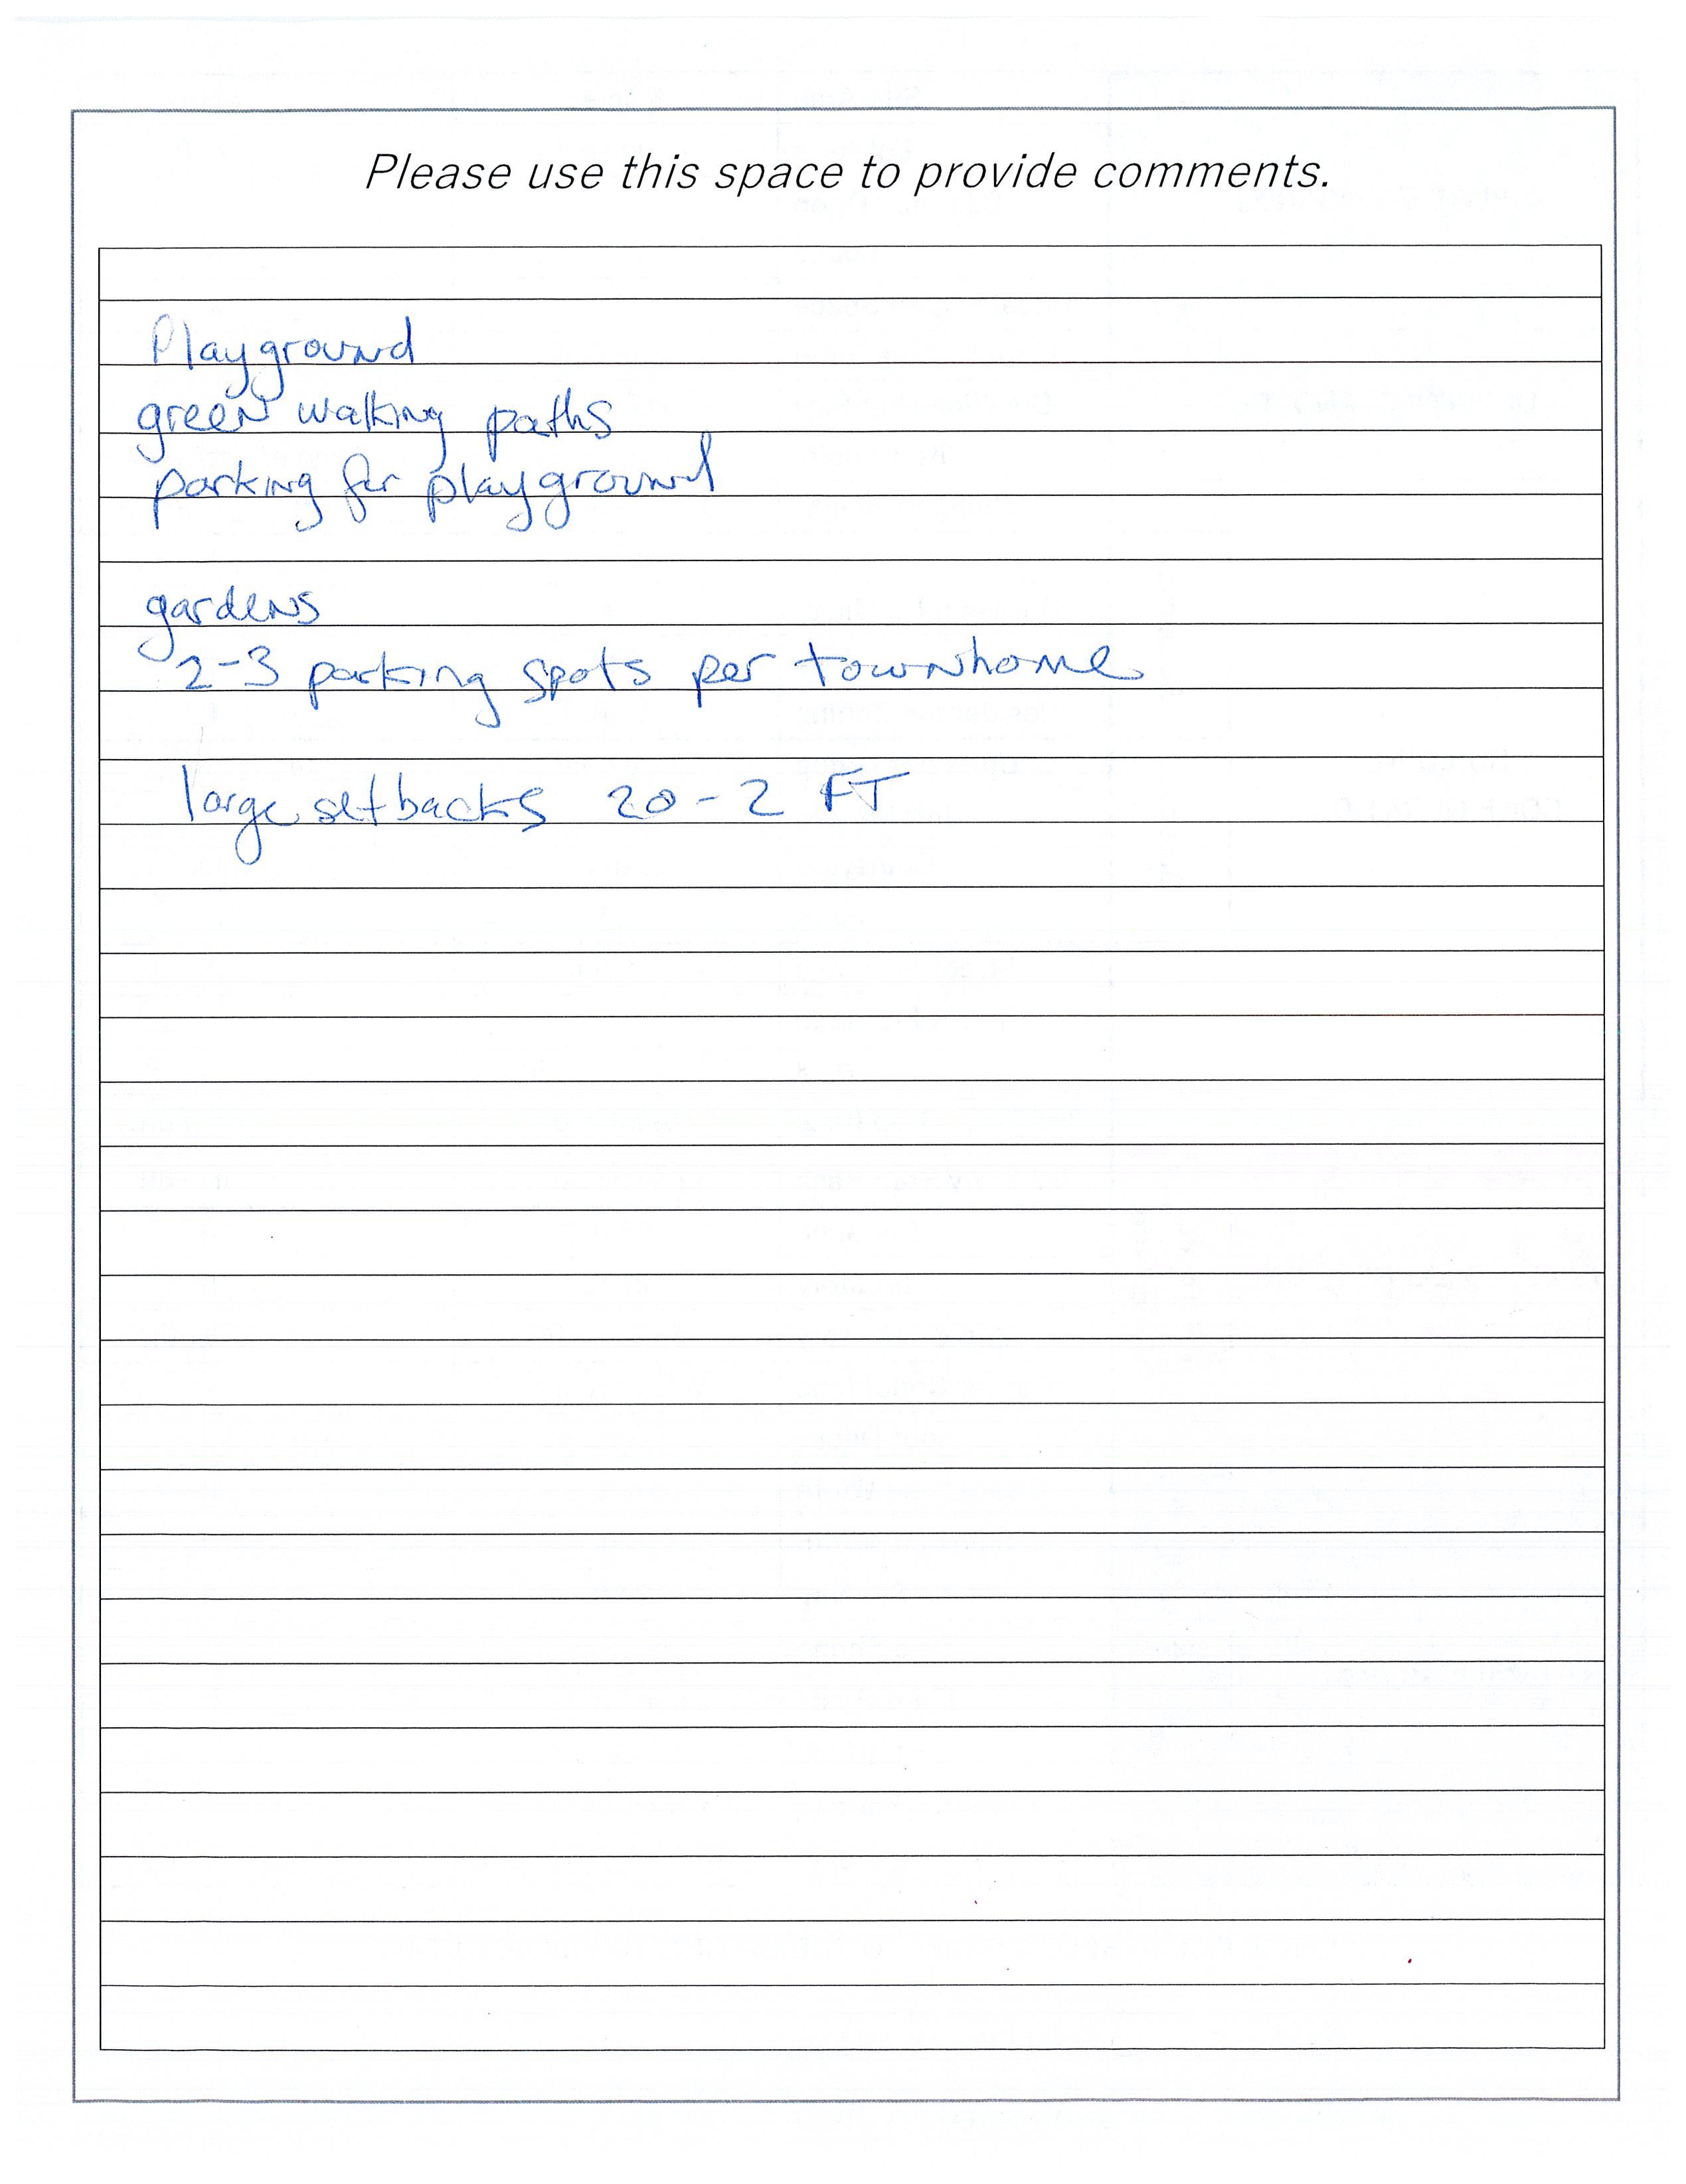 Please use this space to provide comments.
Playground
green walking paths
parking for playground
gardens
2-3 parking spots per townhome
large setbacks 20-2 FT